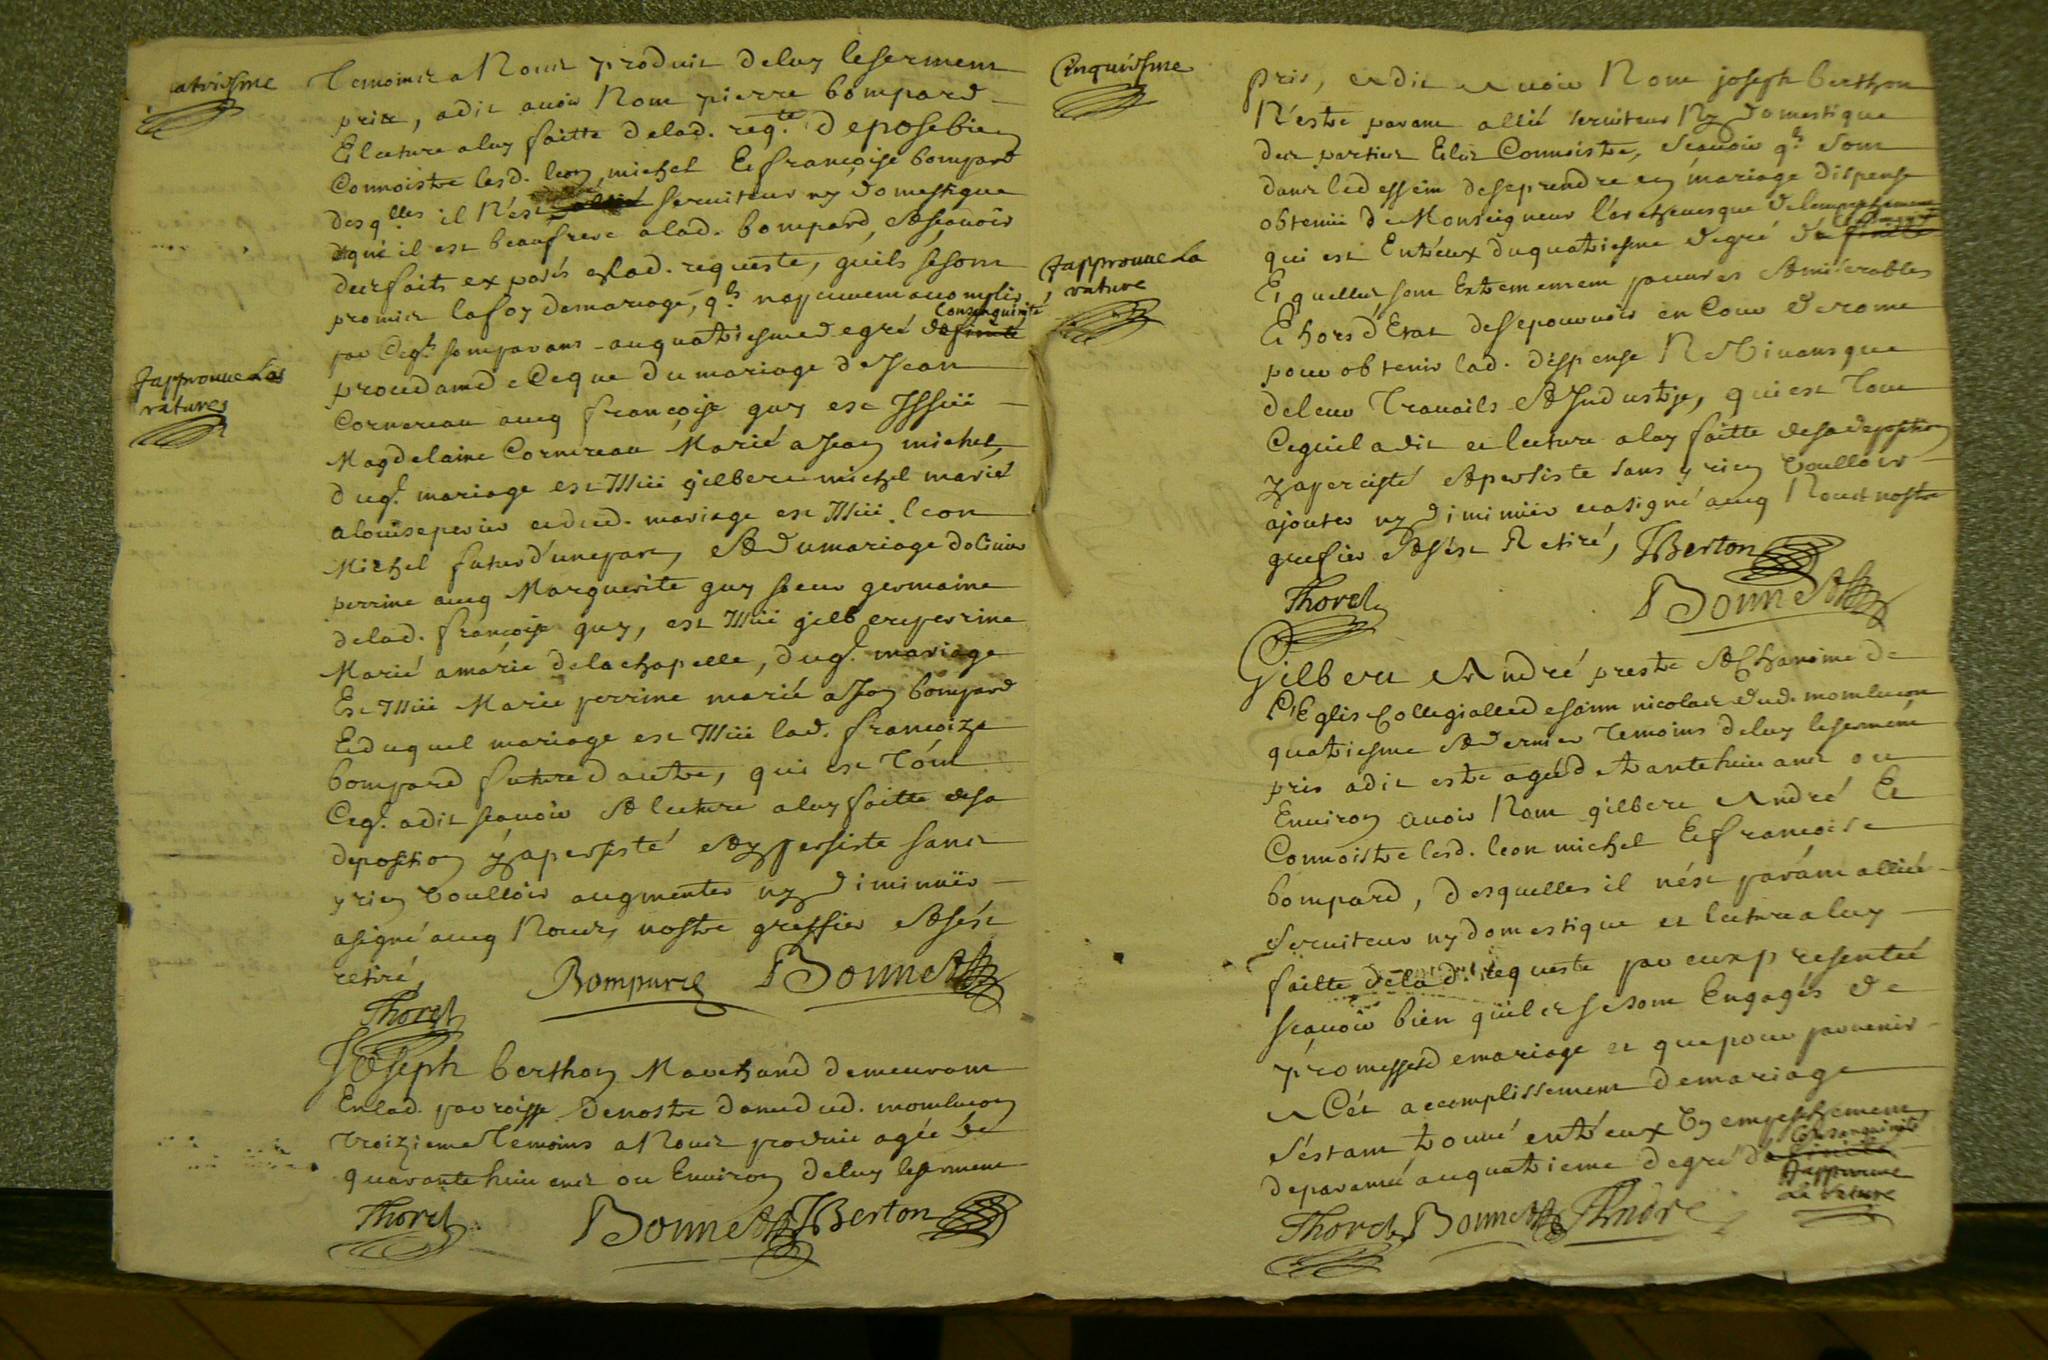 atriesme
Temoins a Nous produit de luy le serment
pris, a dit avoir Nom pierre bompard
Et lecture a luy faitte de lad. reqte. depose bien
Connoistre lesd. leon michel Et françoise bompard
desqlles il n'est serviteur ny domestique
qué il est beaufrere a lad. bompard, & sçavoir
des faits exposés esd. requeste, quils se sont
promis la foy de mariage, qls n'ay peuvent acomplir
Consenguinité
par Ceqls sont parans au quatriesme degré dafinité
J'approuve Las
ratures
prouvdant de Ce que du mariage de Jean
Cornereau avec françoise guy est Issüe
Magdelaine Cornereau Marié a Jean michel,
duql. mariage est Issü gilbert michel marié
a louise perier et dud. mariage est Issü leon
Michel futur d'une part, & du mariage dolivier
perrine avec Marguerite guy soeur germaine
de lad. françoise guy, est Issü gilbert perrine
Marié a marie de la chapelle, duql. mariage
Est Issüe Marie perrine marié a Jean bompard
Et duquel mariage est Issüe lad. françoize
bompard future d'autre, qui est tout
Ceql. a dit sçavoir & lecture a luy faitte de sa
deposition y a persisté & y persiste sans
y rien voulloir augmenter ny diminuer
a signé avec Nous, nostre greffier & s'est
retiré,
Bompard Bonnet
Thorel
Joseph berthon Marchand demeurant
En lad. parroisse de nostre dame dud. monlucon
troizieme temoins a Nous produit agée de
quarante huit ans ou Environ de luy le serment
Thorel Bonnet JBerton
Cinquiesme
pris, et dit avoir Nom joseph berthon
N'estre parant allié serviteur Ny domestique
des parties Et les Connoistre, Scavoir qls. sont
dans le dessein de se prendre en mariage dispense
obtenüe de Monseigneur l'archevesque de l'empeschement
qui est Entreux du quatriesme degré dafinité
J'approuve La
rature
Et quelles sont Extrememem pauvres & miserables
Et hors d'Etat de se pourvoir en Cour de rome
pour obtenir lad. dispense Ne Vivans que
de leur travails & Industrie, qui est tout
Ce quil a dit et lecture a luy faitte de sa deposition
y a percisté & persiste sans y rien voulloir
ajouter ny diminüer et a signé avec Nous nostre
grefier & s'est Retiré, JBerton
Thorel Bonnet
Gilbert André prestre & Chanoine de
l'Eglis Collegialle de saint nicolas dud. monlucon
quatriesme & dernier temoins de luy le serment
pris a dit estre agé de trante huit ans ou
Environ avoir Nom gilbert André Et
Connoistre lesd. leon michel Et francoise
bompard, desquelles il n'est parant allié
serviteur ny domestique et lecture a luy
faitte de lad. requeste par eux presentée
sçavoir bien quiles se sont Engagés de
promesses de mariage et que pour parvenir
a Cét accomplissement de mariage
s'estant trouvé entreux un empeschement
Consanguinité
de paranté au quatrieme degré dafinité
J'approuve
la rature
Thorel Bonnet André